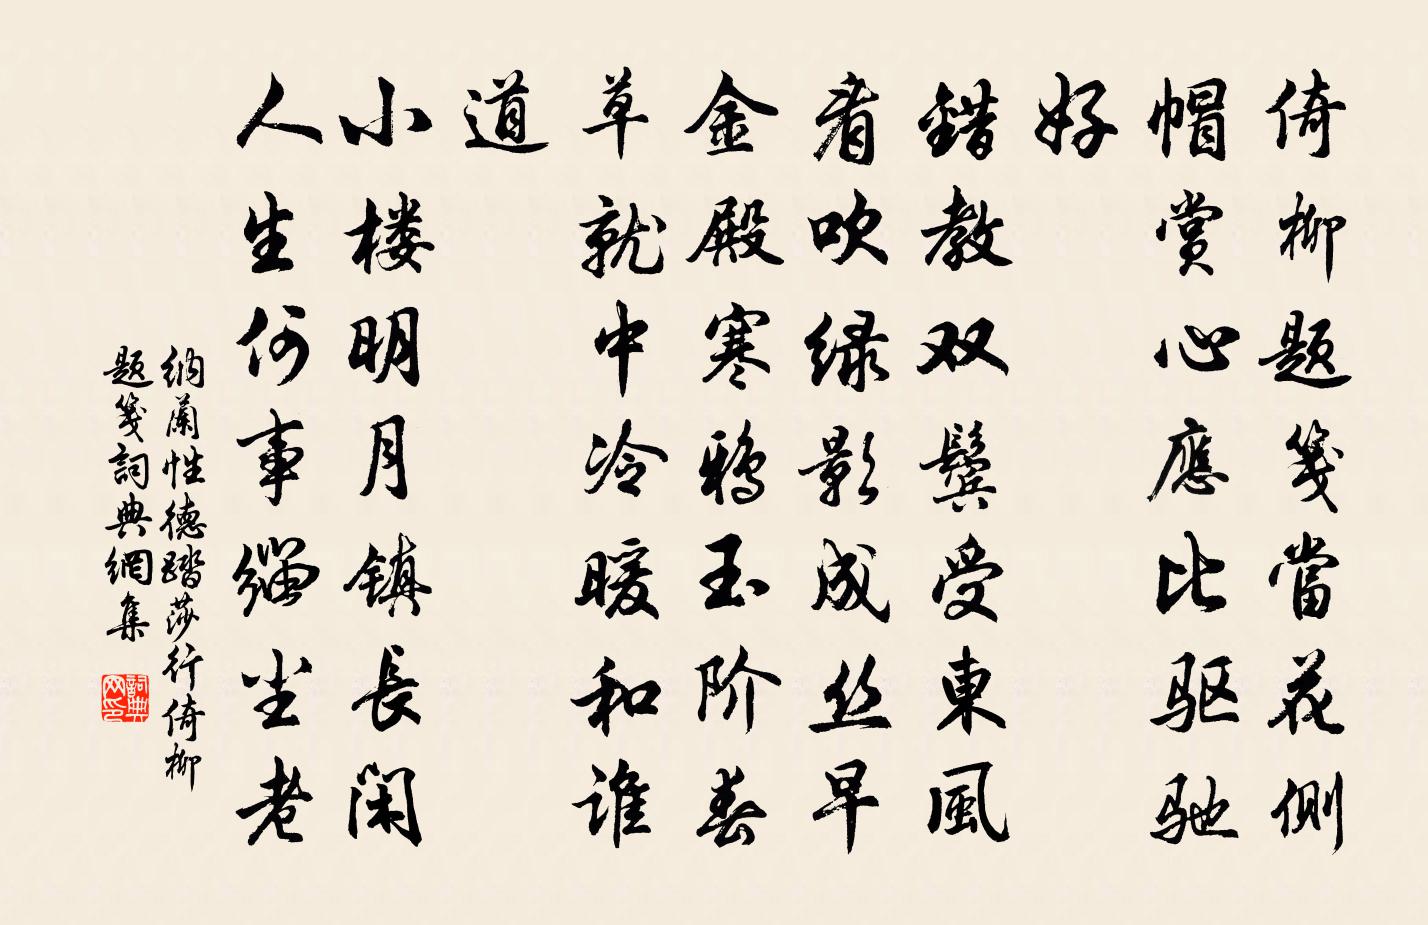 倚柳题笺當花侧
帽赏心應比驱驰
好
錯教双鬓受東風
看吹绿影成丝早
金殿寒鸦玉阶春
草就中冷暖和谁
道
小楼明月镇長闲
人生何事缁尘老
纳蘭性德踏莎行倚柳
题笺詞典網集
詞典网印